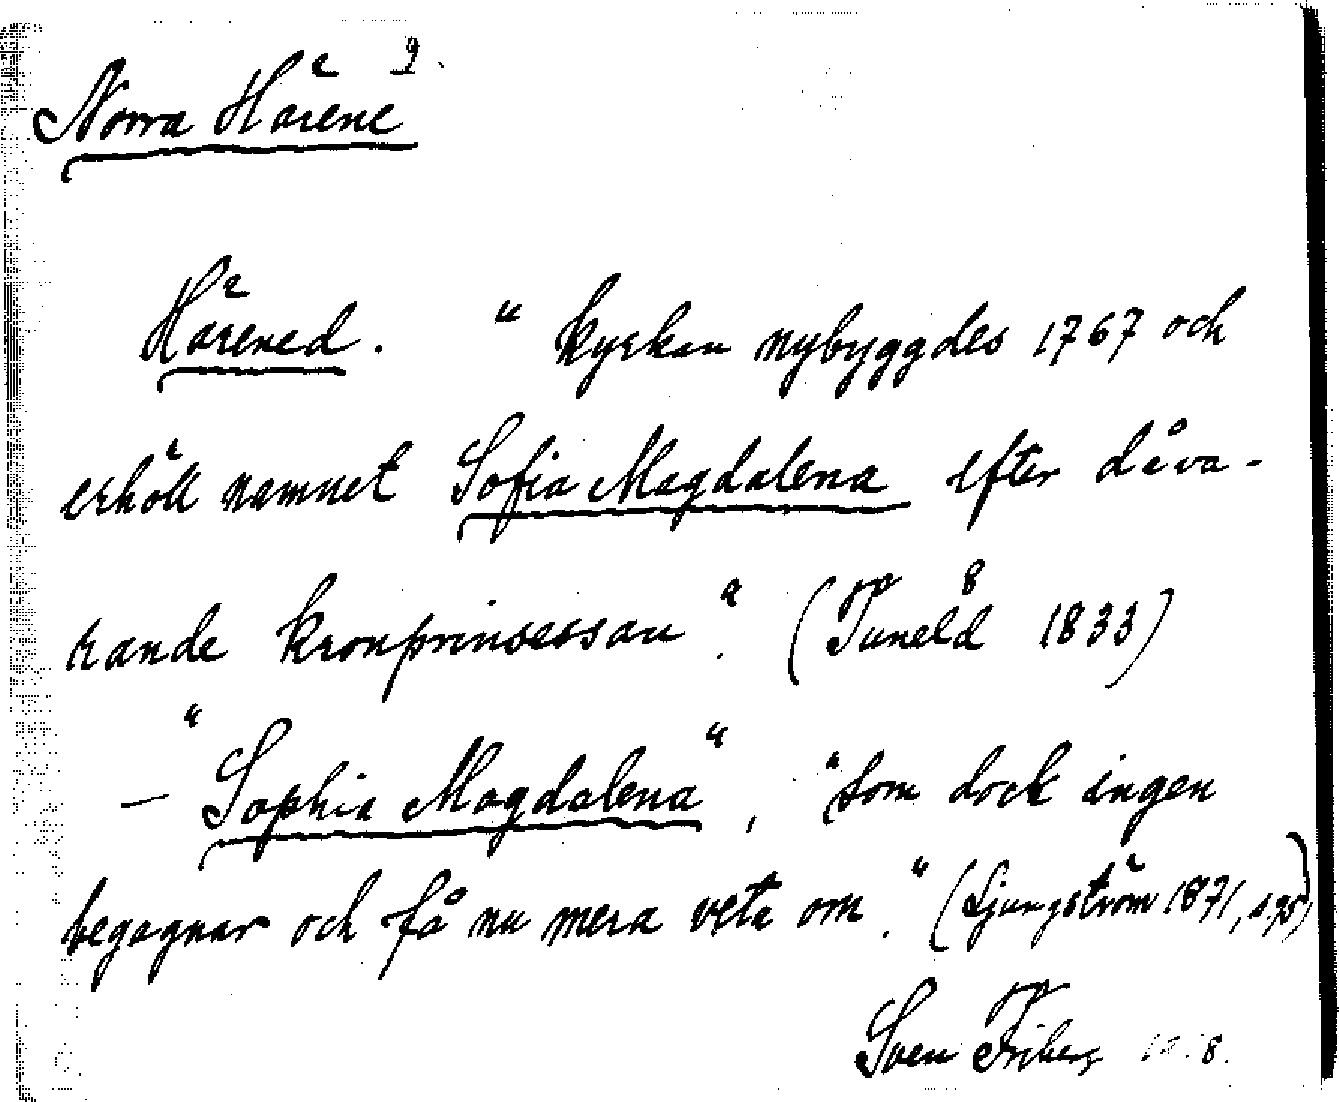 Norra Härene 9.
Härened. "Kyrkan nybyggdes 1767 och
erhöll namnet Sofia Magdalena efter dåva-
rande kronprinsessan". (Tuneld 8 1833)
- "Sophia Magdalena", "som dock ingen
begagnar och få nu mera veta om." (Ljungström 1871, s. 95)
Sven Friberg